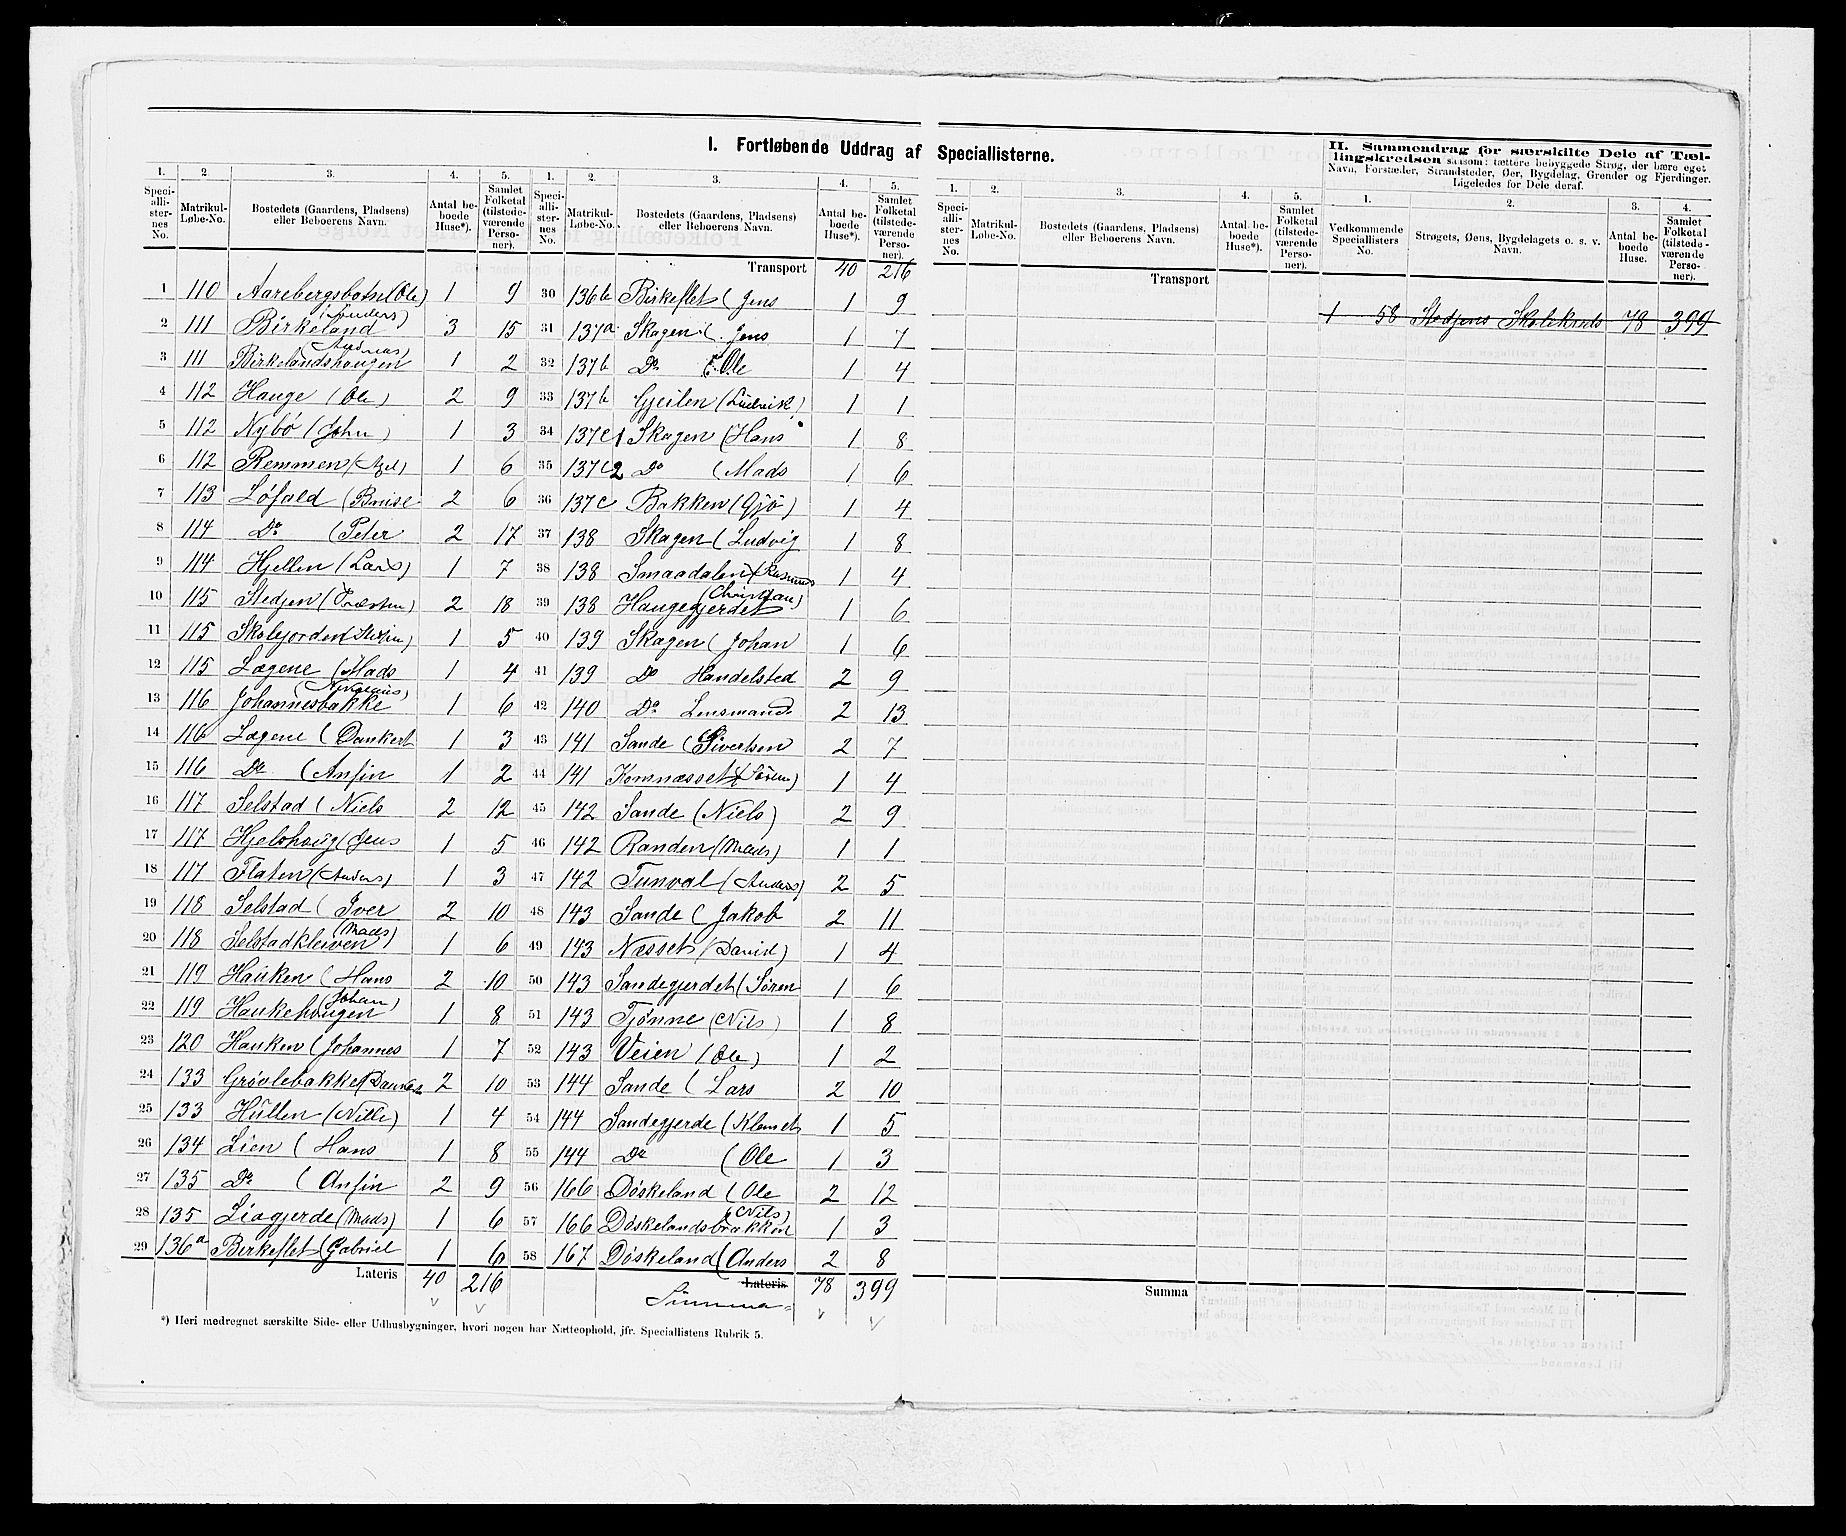 I. Fortløbende Uddrag af Speciallisterne.
II. Sammendrag for særskilte Dele af Tællingskredsen saasom: tættere bebyggede Strøg, der bære eget
Navn, Forstæder, Strandsteder, Øer, Bygdelag, Grender og Fjerdinger.
Ligeledes for Dele deraf.
1. 2. 3. 4. 5. 1. 2. 3. 4. 5. 1. 2. 3. 4. 5. 1. 2. 3. 4.
Speciallisternes No. Matrikul-Løbe-No. Bostedets (Gaardens, Pladsens) eller Beboerens Navn. Antal beboede Huse*). Samlet Folketal (tilstedeværende Personer).
Speciallisternes No. Matrikul-Løbe-No. Bostedets (Gaardens, Pladsens) eller Beboerens Navn. Antal beboede Huse*). Samlet Folketal (tilstedeværende Personer).
Speciallisternes No. Matrikul-Løbe-No. Bostedets (Gaardens, Pladsens) eller Beboerens Navn. Antal beboede Huse*). Samlet Folketal (tilstedeværende Personer).
Vedkommende Speciallisters No. Strøgets, Øens, Bygdelagets o. s. v. Navn. Antal beboede Huse. Samlet Folketal (tilstedeværende Personer).
1 110 Aarebergsbotn (Ole) 1 9
2 111 Birkeland (Anders) 3 15
3 111 Birkelandshougen (Andreas) 1 2
4 112 Hauge (Ole) 2 9
5 112 Nybö (John) 1 3
6 112 Remmen 1 6
7 113 Löfald 2 6
8 114 Do (Peter 2 17
9 114 Hjellen (Lars) 1 7
10 115 Stedjen 2 18
11 115 Skolejorden 1 5
12 115 Lægene (Mads 1 4
13 116 Johannesbakke 1 6
14 116 Lægene (Dankert 1 3
15 116 Do (Anfin 1 2
16 117 Selstad (Niels 2 12
17 117 Hjelshoug (Jens 1 5
18 117 Flaten (Anders) 1 3
19 118 Selstad (Iver 2 10
20 118 Selstadkleiven (Mads) 1 6
21 119 Hauken (Hans 2 10
22 119 Haukehougen (Johan) 1 8
23 120 Hauken (Johannes 1 7
24 133 Grövlebakke 2 10
25 133 Hullen (Nille) 1 4
26 134 Lien (Hans 1 8
27 135 Do (Anfin 2 9
28 135 Liagjerde (Mads) 1 6
29 136a Birkeflet (Gabriel 1 6
Lateris 40 216
Transport 40 216
30 136b Birkeflet (Jens 1 9
31 137a Skagen (Jens 1 7
32 137b Do (Ole 1 4
33 137b Gjeilen (Ludvik) 1 1
34 137c1 Skagen (Hans 1 8
35 137c2 Do (Mads 1 6
36 137c Bakken (Gjö) 1 4
37 138 Skagen (Ludvig 1 8
38 138 Smaadalen (Rasmus 1 4
39 138 Haugegjerdet (Christian) 1 6
40 139 Skagen (Johan 1 6
41 139 Do Handelsted 2 9
42 140 Do Lensmand 2 13
43 141 Sande (Sivertsen 2 7
44 141 Kornnæsset (Sören) 1 4
45 142 Sande (Niels) 2 9
46 142 Randen (Mads) 1 1
47 142 Tunval (Anders) 2 5
48 143 Sande (Jakob 2 11
49 143 Næsset (David) 1 4
50 143 Sandegjerdet (Sören 1 6
51 143 Tjönne (Nils) 1 8
52 143 Veien (Ole) 1 2
53 144 Sande (Lars 2 10
54 144 Sandegjerde (Klemet 1 5
55 144 Do (Ole 1 3
56 166 Döskeland (Ole 2 12
57 166 Döskelandsbrækken (Nils) 1 3
58 167 Döskeland (Anders 2 8
Lateris 78 399
Summa
Transport
Summa
1 58 Stedjens Skolekreds 78 399
*) Heri medregnet særskilte Side- eller Udhusbygninger, hvori nogen har Natteophold, jfr. Speciallistens Rubrik 5.